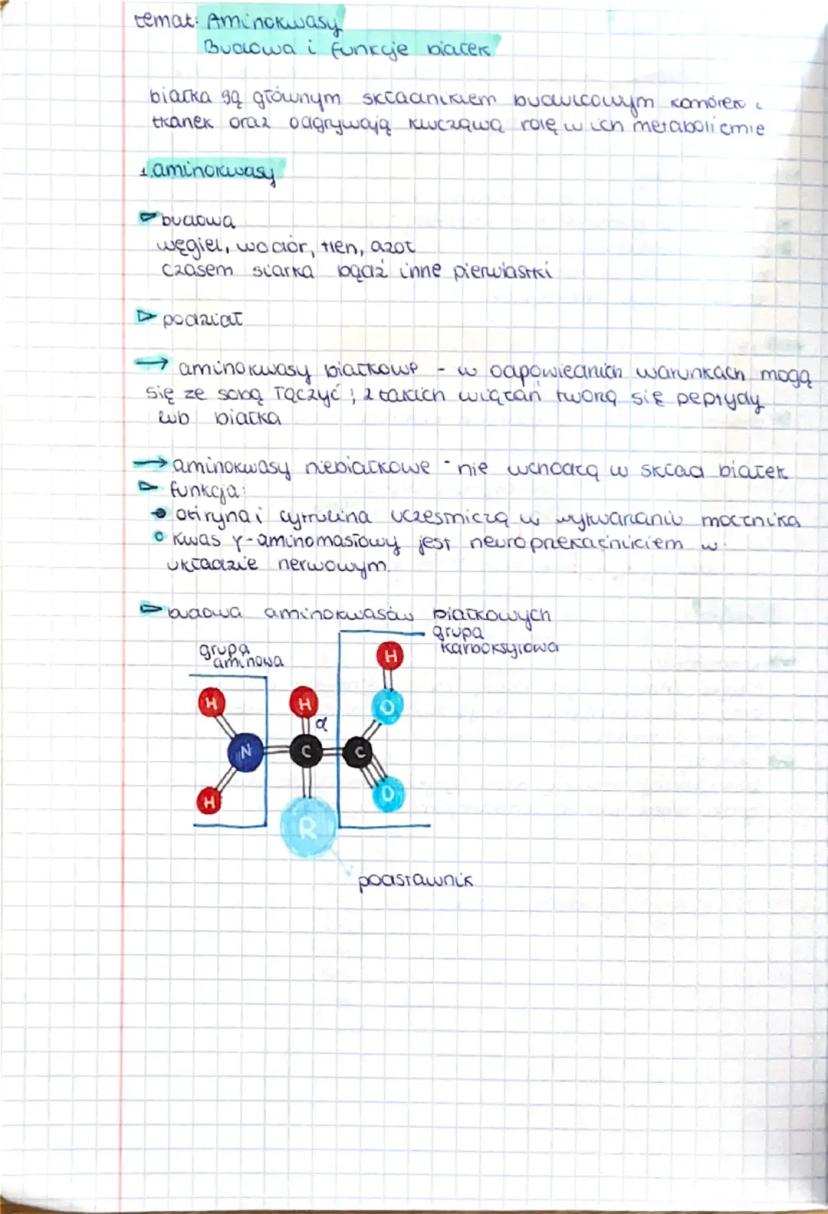 temat: Aminokwasy
Budowa i funkcje białek
białka są głównym składnikiem budulcowym komórek i
tkanek oraz odgrywają kluczową rolę w ich metabolizmie
1. aminokwasy
budowa
węgiel, wodór, tlen, azot
czasem siarka bądź inne pierwiastki
podział
→ aminokwasy białkowe - w odpowiednich warunkach mogą
się ze sobą łączyć; z takich wiązań tworzą się peptydy
lub białka
→ aminokwasy niebiałkowe - nie wchodzą w skład białek
funkcja:
otiryna i cytrulina uczesniczą w wytwarzaniu mocznika
kwas γ-aminomasłowy jest neuroprzekaźnikiem w
układzie nerwowym.
budowa aminokwasów białkowych
grupa aminowa
grupa karboksylowa
H
H H
α O
N C C
H O
R
podstawnik